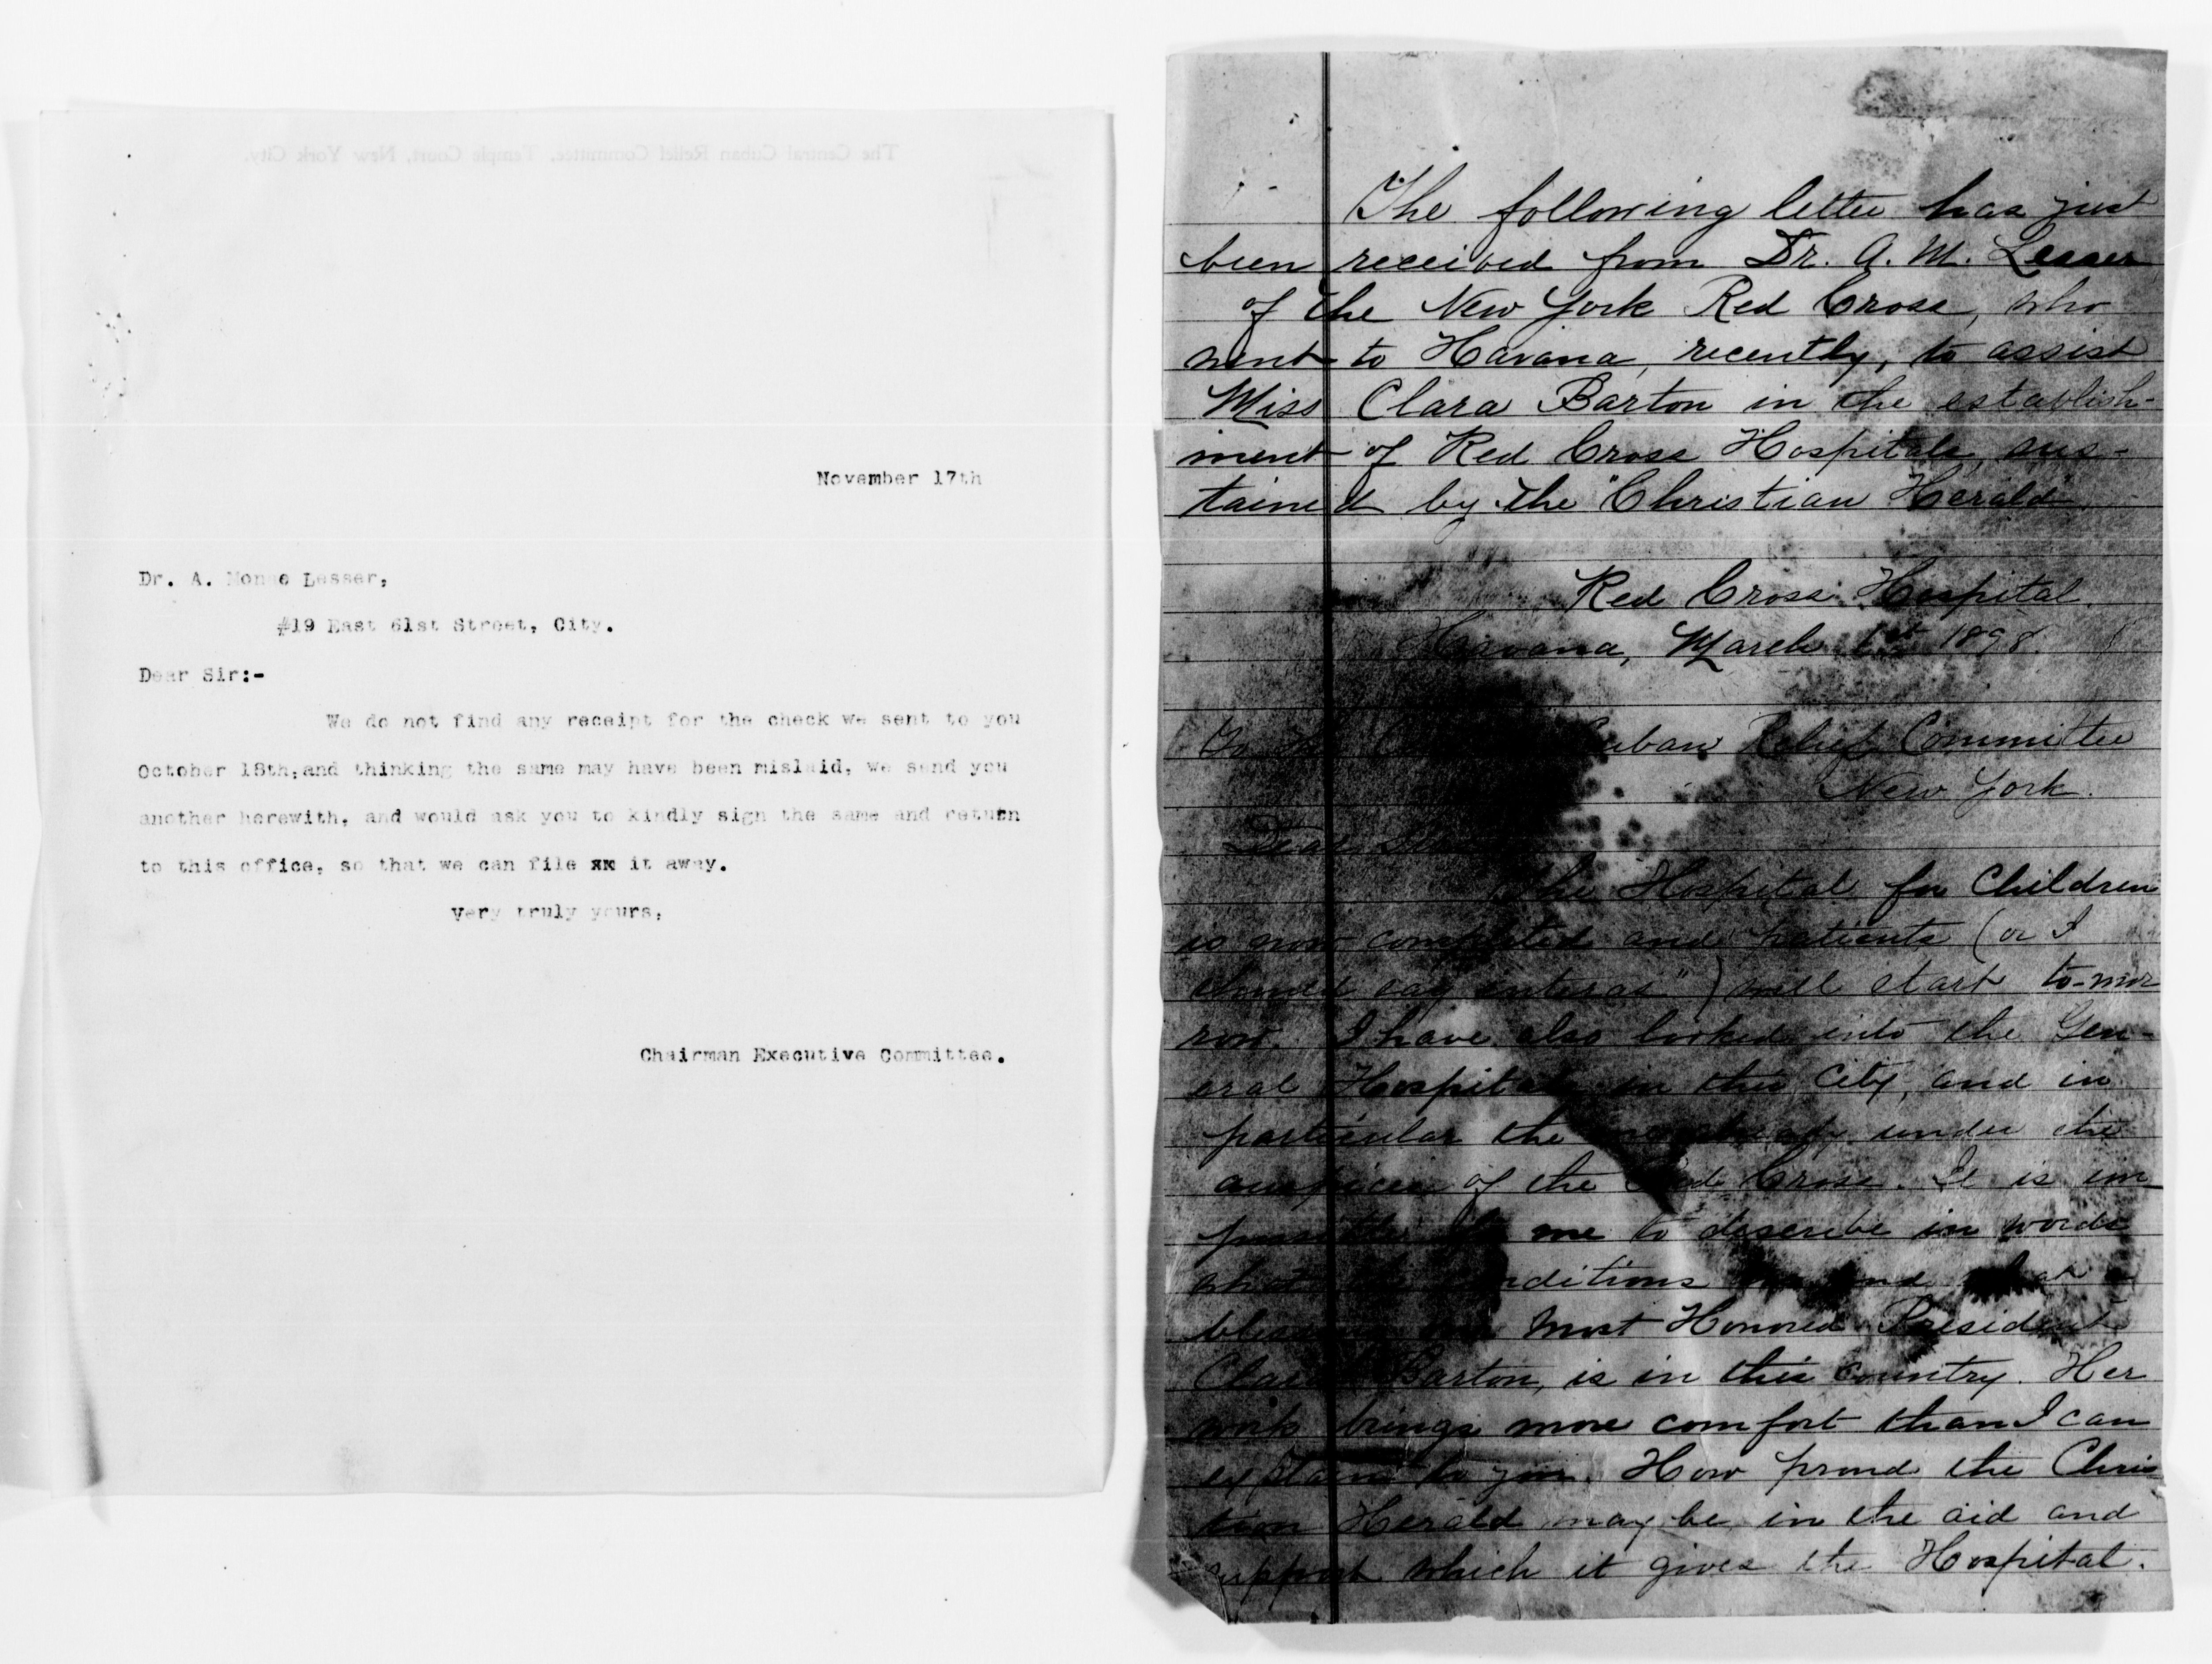 The Central Cuban Relief Committee, Temple Court, New York City.
November 17th
Dr. A. Monae Lesser,
#19 East 61st Street, City.
Dear Sir:-
We do not find any receipt for the check we sent to you
October 18th,and thinking the same may have been mislaid, we send you
another herewith, and would ask you to kindly sign the same and return
to this office, so that we can file xx it away.
Very truly yours,
Chairman Executive Committee.
The following letter has just
been received from Dr. A. M. Lesser
of the New York Red Cross, who
went to Havana, recently, to assist
Miss Clara Barton in the establish-
ment of Red Cross Hospitals, sus-
tained by the "Christian Herald".
Red Cross Hospital.
Havana, March 1st 1898.
To the Cuban Relief Committee
New York.
Dear
The Hospital for Children
is now completed and patients (or I
should say ) will start to-mor
row. I have also looked into the Gen-
eral Hospitals in this City, and in
particular the under the
auspices of the Red Cross. It is im
possible for me to describe in words
what the conditions are and what a
blessing our Most Honored President
Clara Barton, is in this country. Her
work brings more comfort than I can
explain to you. How proud the Chris
tian Herald may be in the aid and
support which it gives the Hospital.